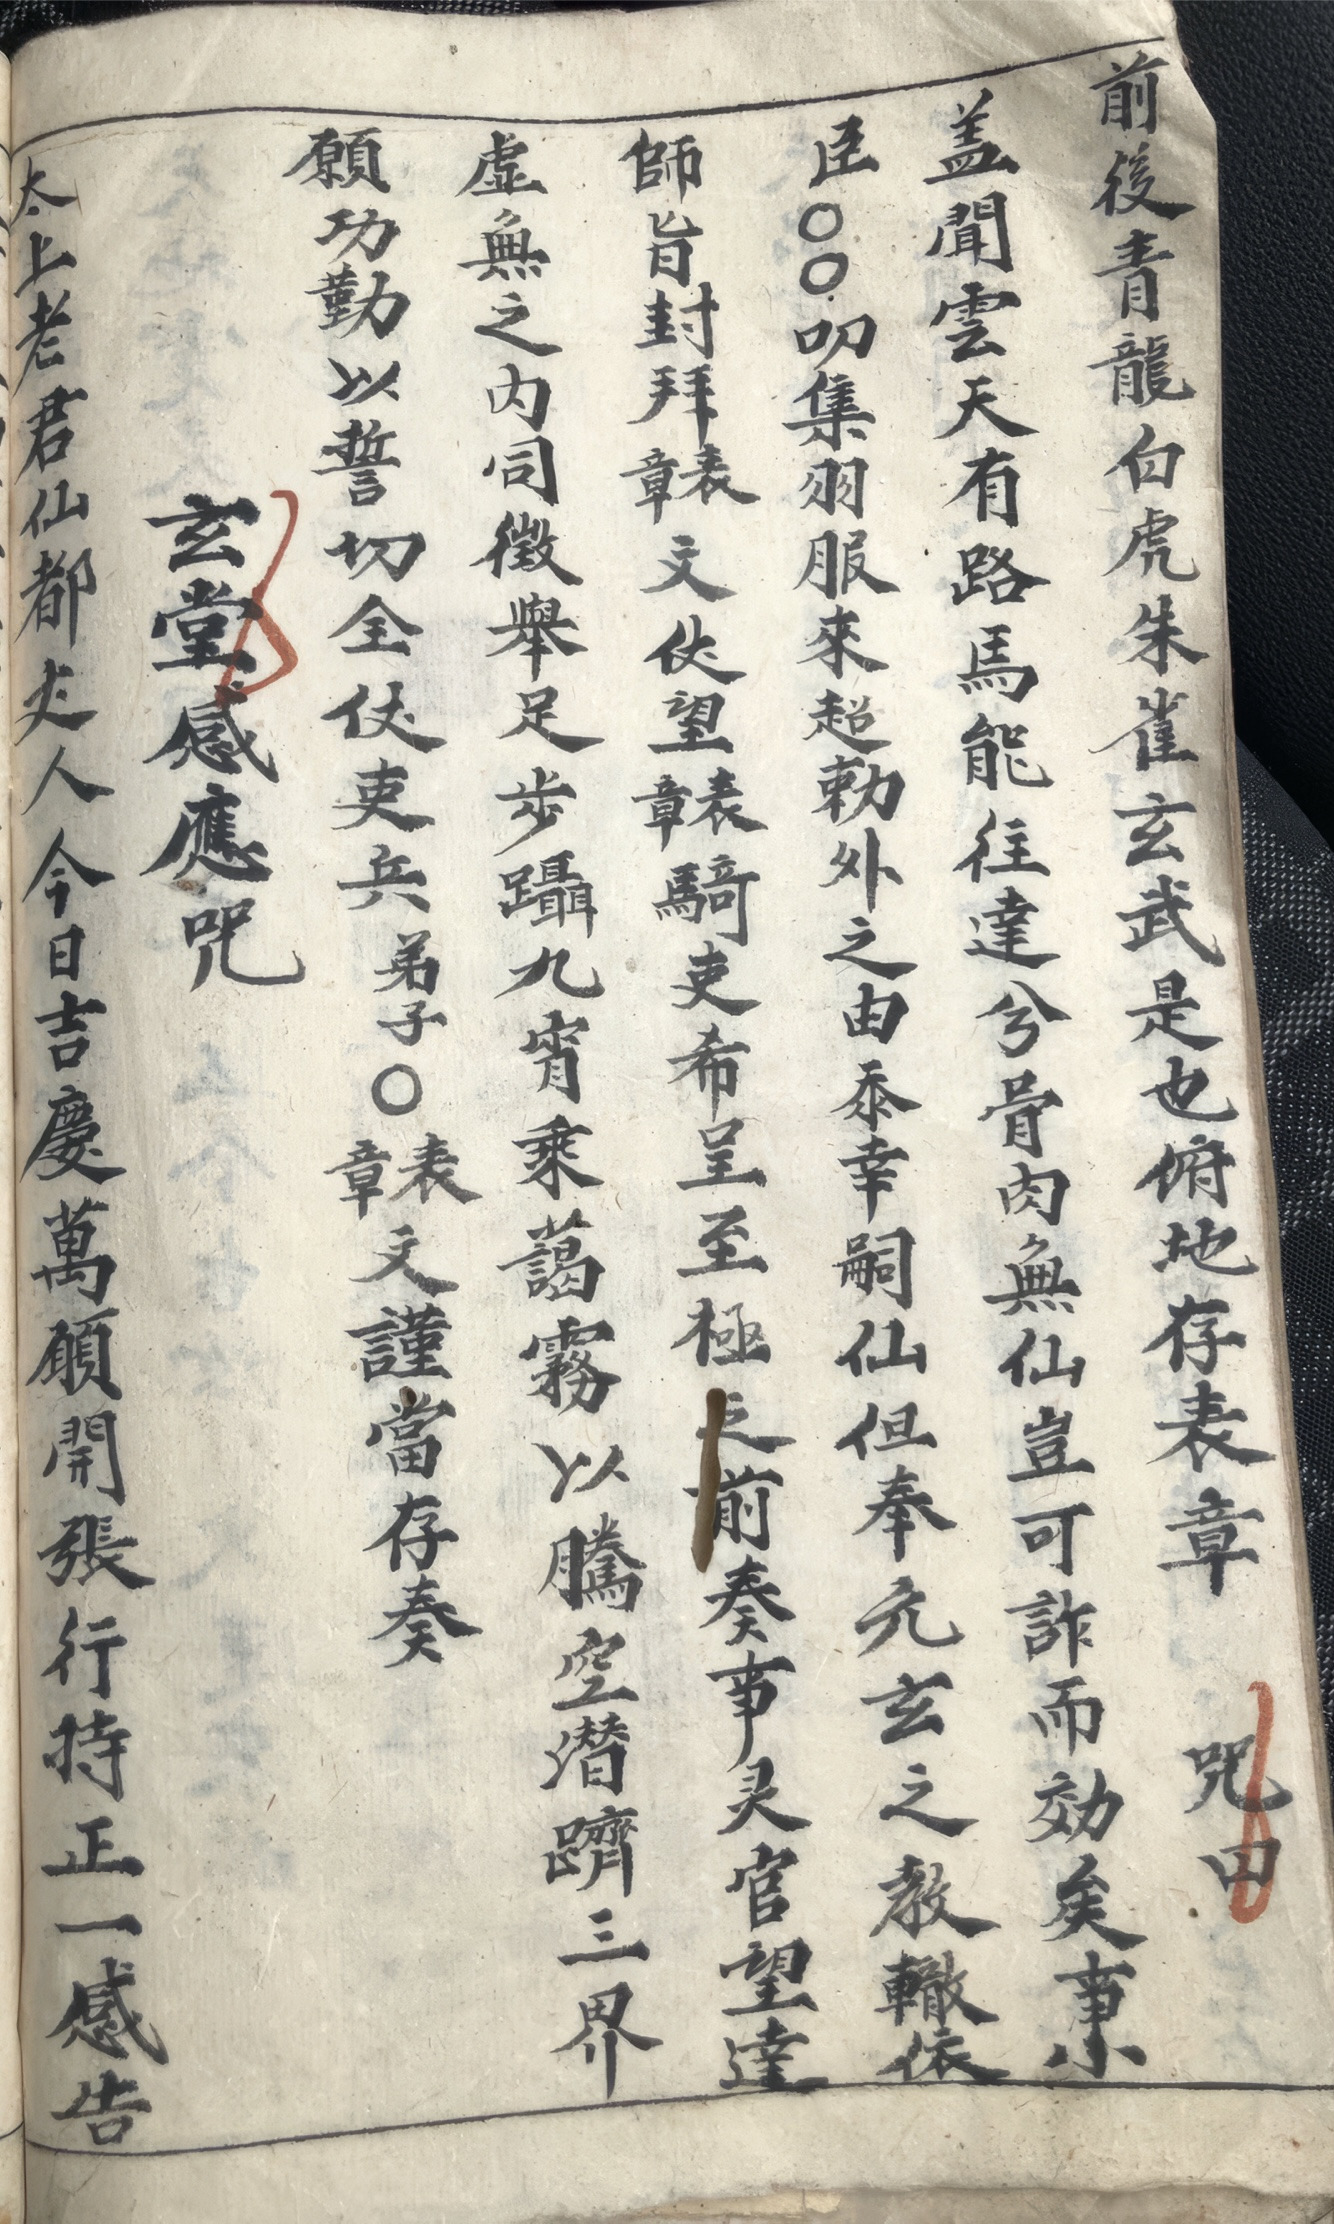 前後青龍白虎朱雀玄武是也俯地存表章　咒曰
盖聞雲天有路焉能往達兮骨肉無仙豈可詐而効矣事小
臣〇〇叨集羽服來超勅外之由忝幸嗣仙但奉元玄之教轍依
師旨封拜表章文伏望表章騎吏希呈至極之前奏事灵官望達
虛無之內同徵舉足步躡九宵乘藹霧以騰空潛躋三界
願功勤以誓切全仗吏兵弟子〇表章文謹當存奏
玄堂感應咒
太上老君仙都丈人今日吉慶萬願開張行持正一感告